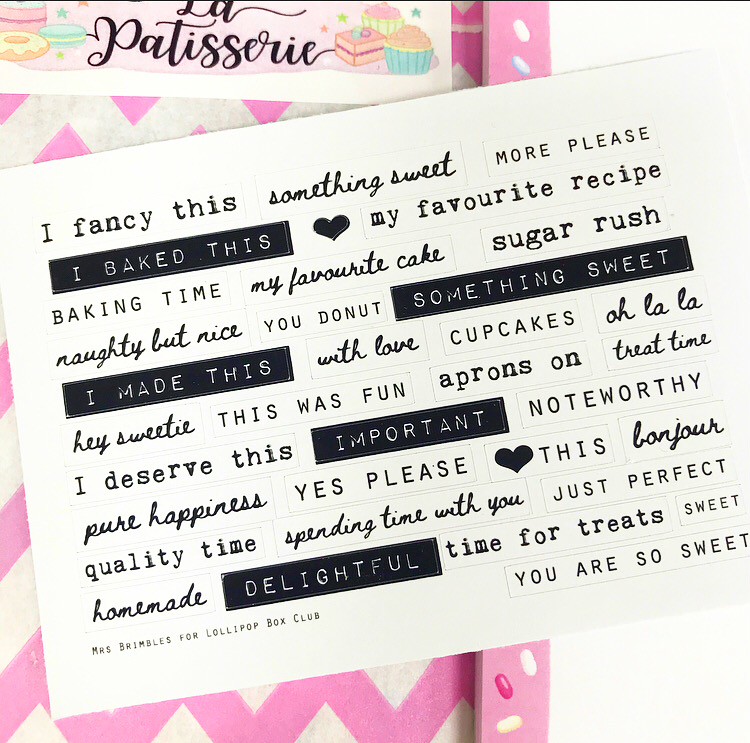 La
Patisserie
I fancy this something sweet MORE PLEASE
I BAKED THIS ♥ my favourite recipe
BAKING TIME my favourite cake sugar rush
naughty but nice YOU DONUT SOMETHING SWEET
I MADE THIS with love CUPCAKES oh la la
hey sweetie THIS WAS FUN aprons on treat time
I deserve this IMPORTANT NOTEWORTHY
pure happiness YES PLEASE ♥ THIS bonjour
quality time spending time with you JUST PERFECT
homemade DELIGHTFUL time for treats SWEET
YOU ARE SO SWEET
MRS BRIMBLES FOR LOLLIPOP BOX CLUB